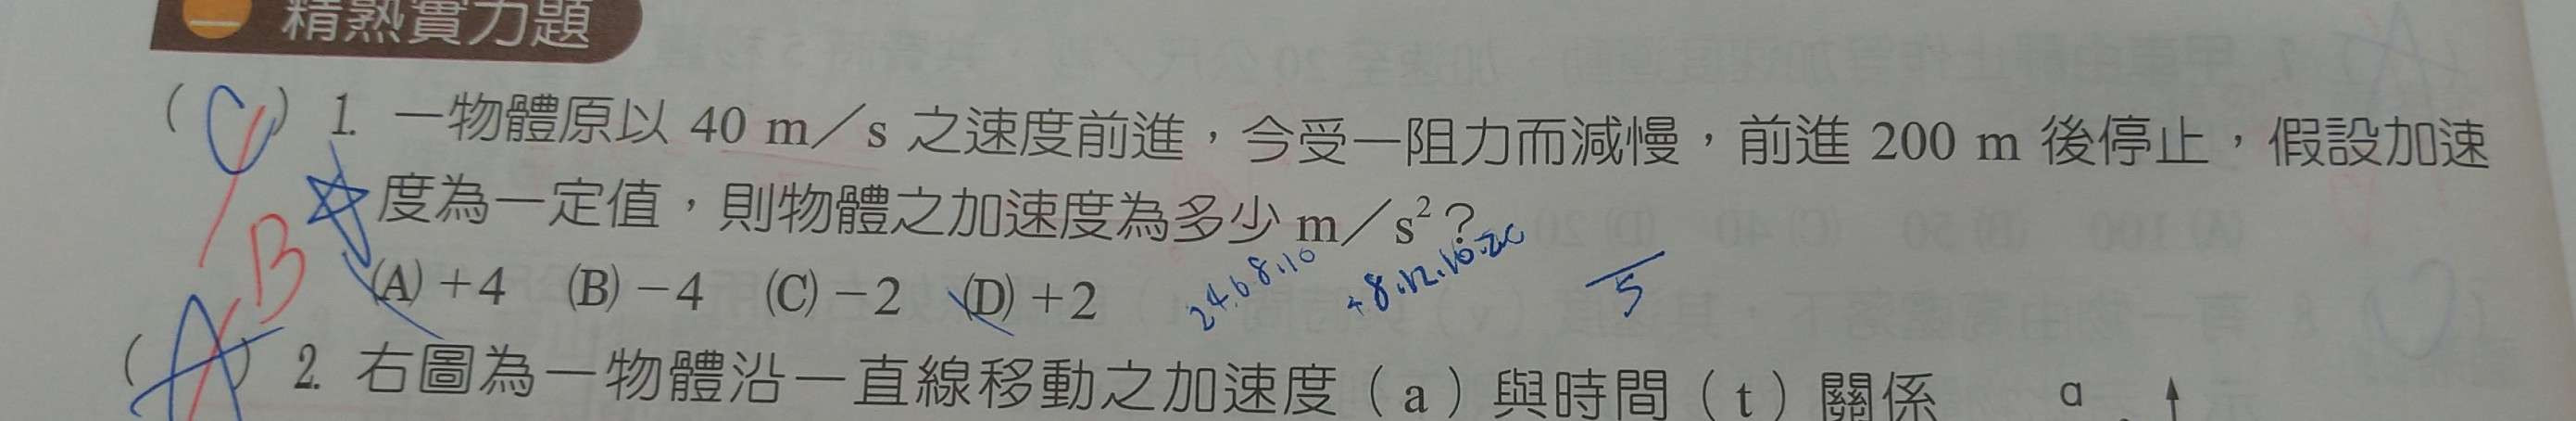 一 精熟實力題
( C ) 1. 一物體原以 40 m／s 之速度前進，今受一阻力而減慢，前進 200 m 後停止，假設加速
度為一定值，則物體之加速度為多少 m／s²？
B (A)＋4 (B)－4 (C)－2 (D)＋2 2.4.6.8.10 4.8.12.16.20 5
( A ) 2. 右圖為一物體沿一直線移動之加速度（a）與時間（t）關係 a